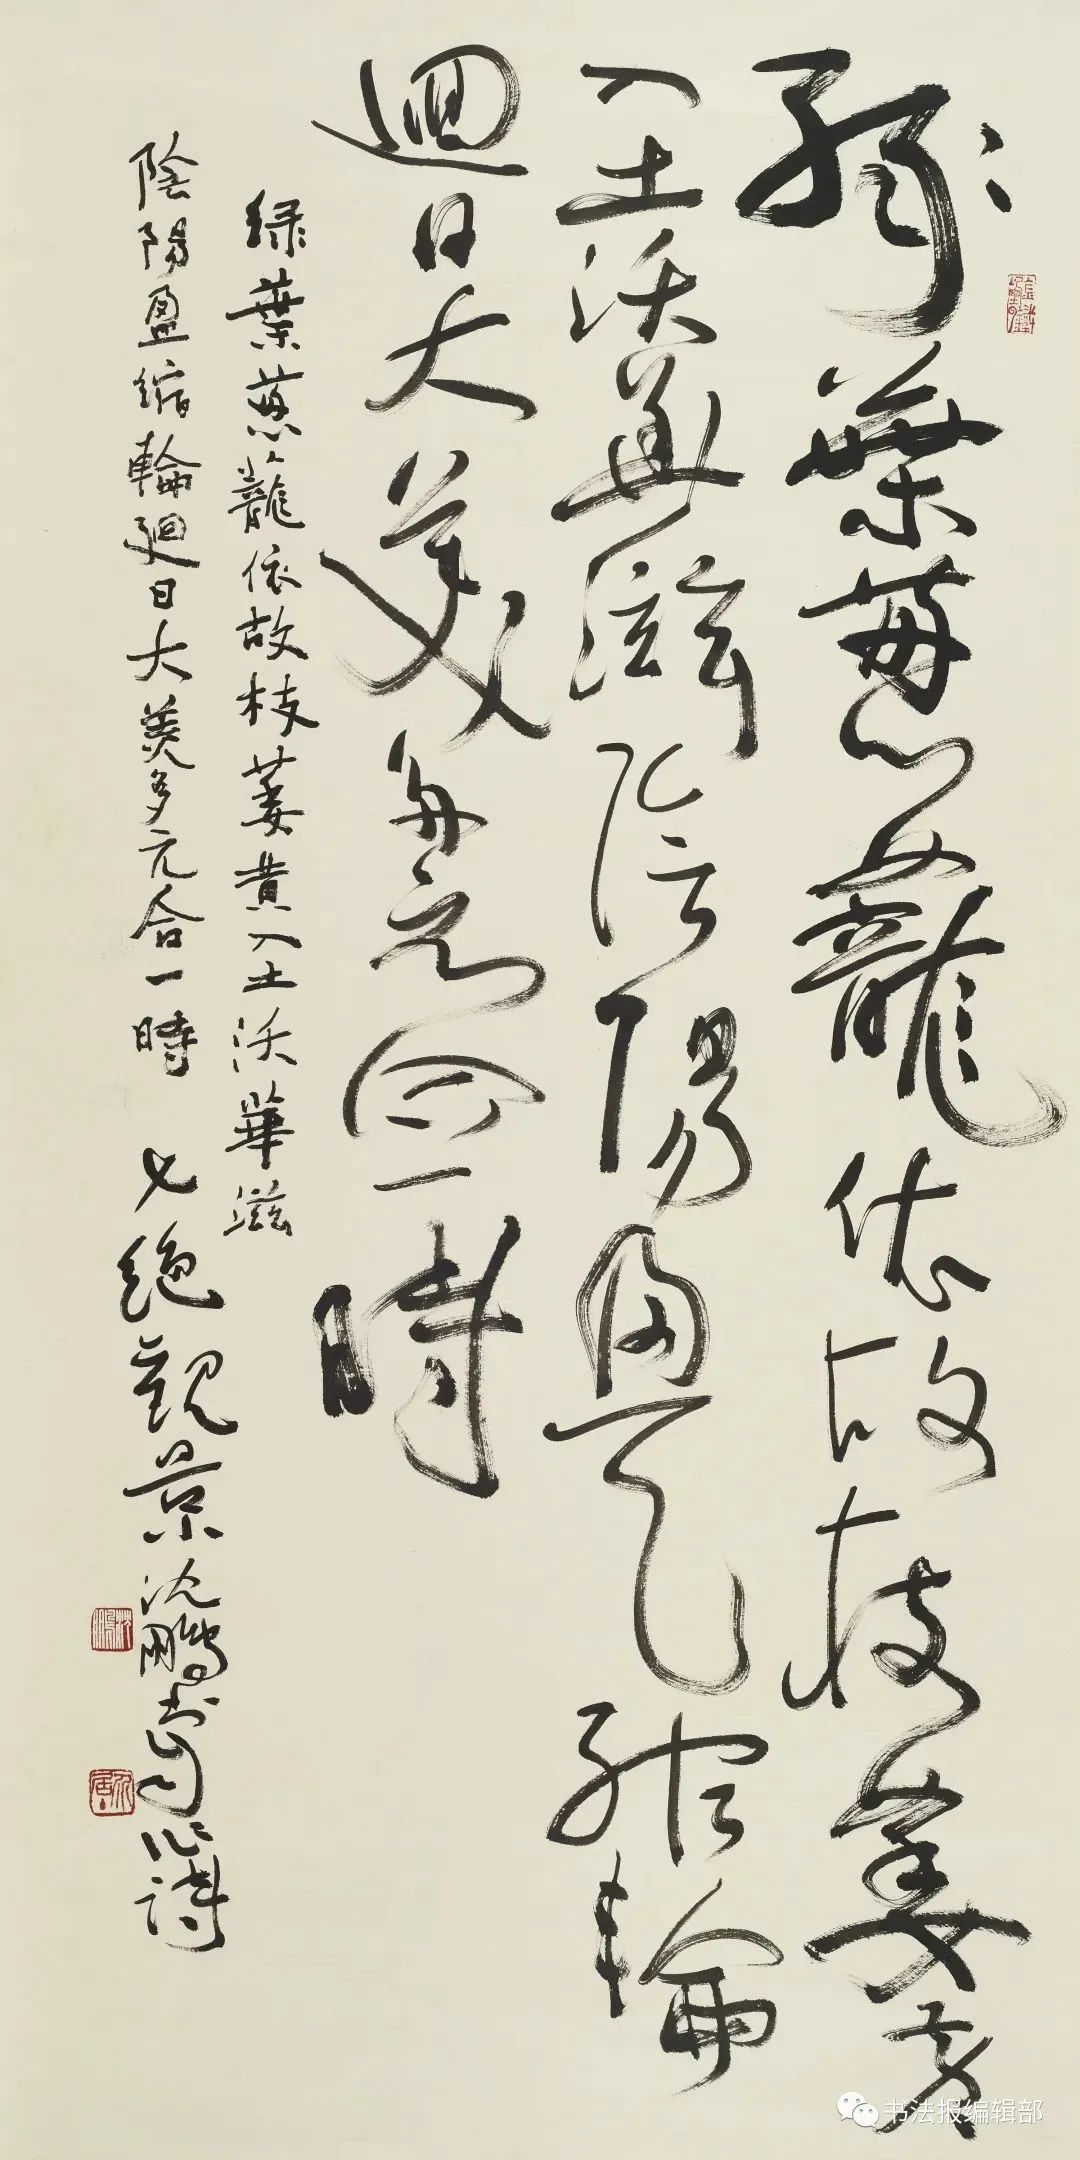 緑葉蔥蘢依故枝萎黄
入土沃華滋陰陽盈縮輪
迴日大美多元合一時
緑葉蔥蘢依故枝萎黄入土沃華滋
陰陽盈縮輪迴日大美多元合一時 七絶觀景沈鵬書自作詩
书法报编辑部